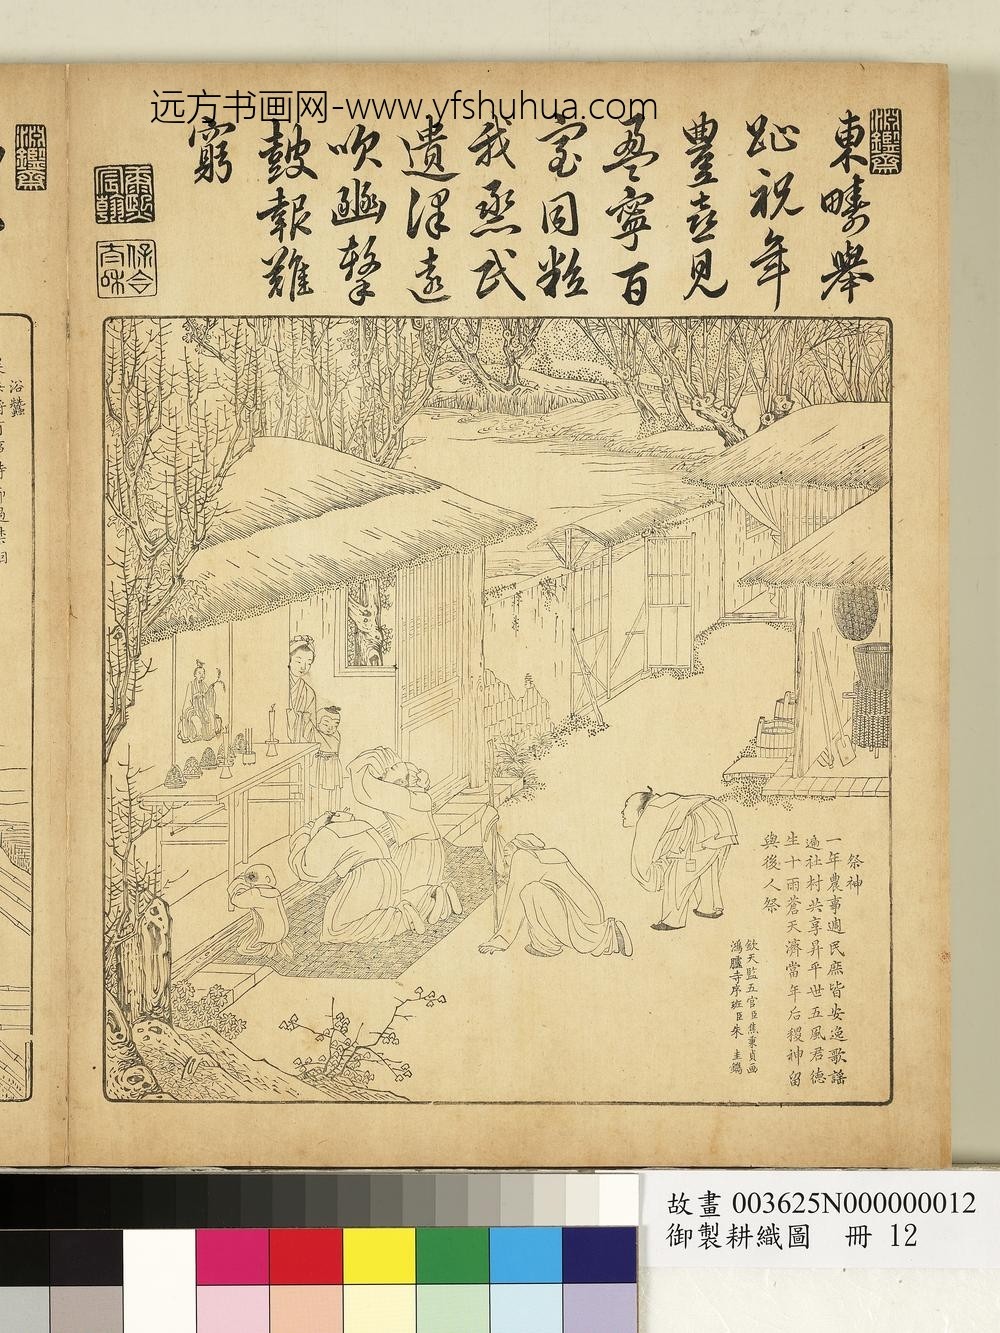 远方书画网-www.yfshuhua.com
淵鑒齋
東疇舉
趾祝年
豐喜見
盈寧百
室同粒
我烝民
遺澤遠
吹豳擊
鼓報難
窮
康熙宸翰
保合太和
祭神
一年農事週民庶皆安逸歌謠
遍社村共享昇平世五風君德
生十雨蒼天濟當年后稷神留
與後人祭
欽天監五官臣焦秉貞画
鴻臚寺序班臣朱 圭鐫
淵鑒齋
浴蠶
故畫 003625N000000012
御製耕織圖 冊 12